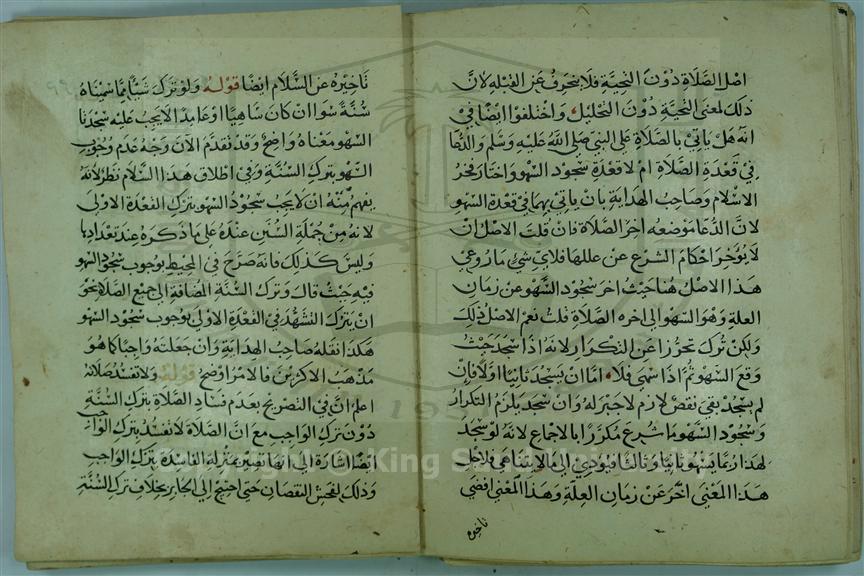 اصل الصلاة دون التحية فلا ينحرف عن القبلة لان
ذلك لمعنى التحية دون التحليل، واختلفوا ايضا في
انه هل ياتي بالصلاة على النبي صلى الله عليه وسلم والدعا
في قعدة الصلاة ام لا قعدة سجود السهو واختار فخر
الاسلام وصاحب الهداية بان ياتي بهما في قعدة السهو
لان الدعا موضعه اخر الصلاة فان قلت الاصل ان
لا يؤخر احكام الشرع عن عللها فلاي شئ ما روعي
هذا الاصل هنا حيث اخر سجود السهو عن زمان
العلة وهو السهو الى اخره الصلاة قلت نعم الاصل ذلك
ولكن ترك تحرزا عن التكرار لانه اذا سجد حيث
وقع السهو ثم اذا سهى فلا، اما ان يسجد ثانيا اولا فان
لم يسجد بقي نقص لازم لا جبر له وان سجد يلزم التكرار
وسجود السهو ما شرع مكررا بالاجماع لانه لو سجد
لهذا ربما يسهو ثانيا وثالثا فيودي الى ما لا يتناهى فلاجل
هذا المعنى اخر عن زمان العلة وهذا المعنى اقتضى
تاخيره
تاخيره عن السلام ايضا قوله ولو ترك شيأ مما سميناه
سنة سوا ان كان ساهيا او عامدا لا يجب عليه سجدتا
السهو معناه واضح وقد تقدم الان وجه عدم وجوب
السهو بترك السنة وفي اطلاق هذا السلام نظر لانه
يفهم منه ان لا يجب سجود السهو بترك القعدة الاولى
لانه من جملة السنن عنده على ما ذكره عند تعدادها
وليس كذلك فانه صرح في المحيط بوجوب سجود السهو
فيه حيث قال وترك السنة المضافة الى جميع الصلاة نحو
ان يترك التشهد في القعدة الاولى بوجوب سجود السهو
هكذا نقله صاحب الهداية وان جعلته واجبا كما هو
مذهب الاكثرين فالامر اوضح قوله ولا تفسد صلاته
اعلم ان في التصريح بعدم فساد الصلاة بترك السنة
دون ترك الواجب مع ان الصلاة لا تفسد بترك الواجب
ايضا اشارة الى انها تصير بمنزلة الفاسدة بترك الواجب
وذلك لفحش النقصان حتى احتيج الى الجابر بخلاف ترك السنة